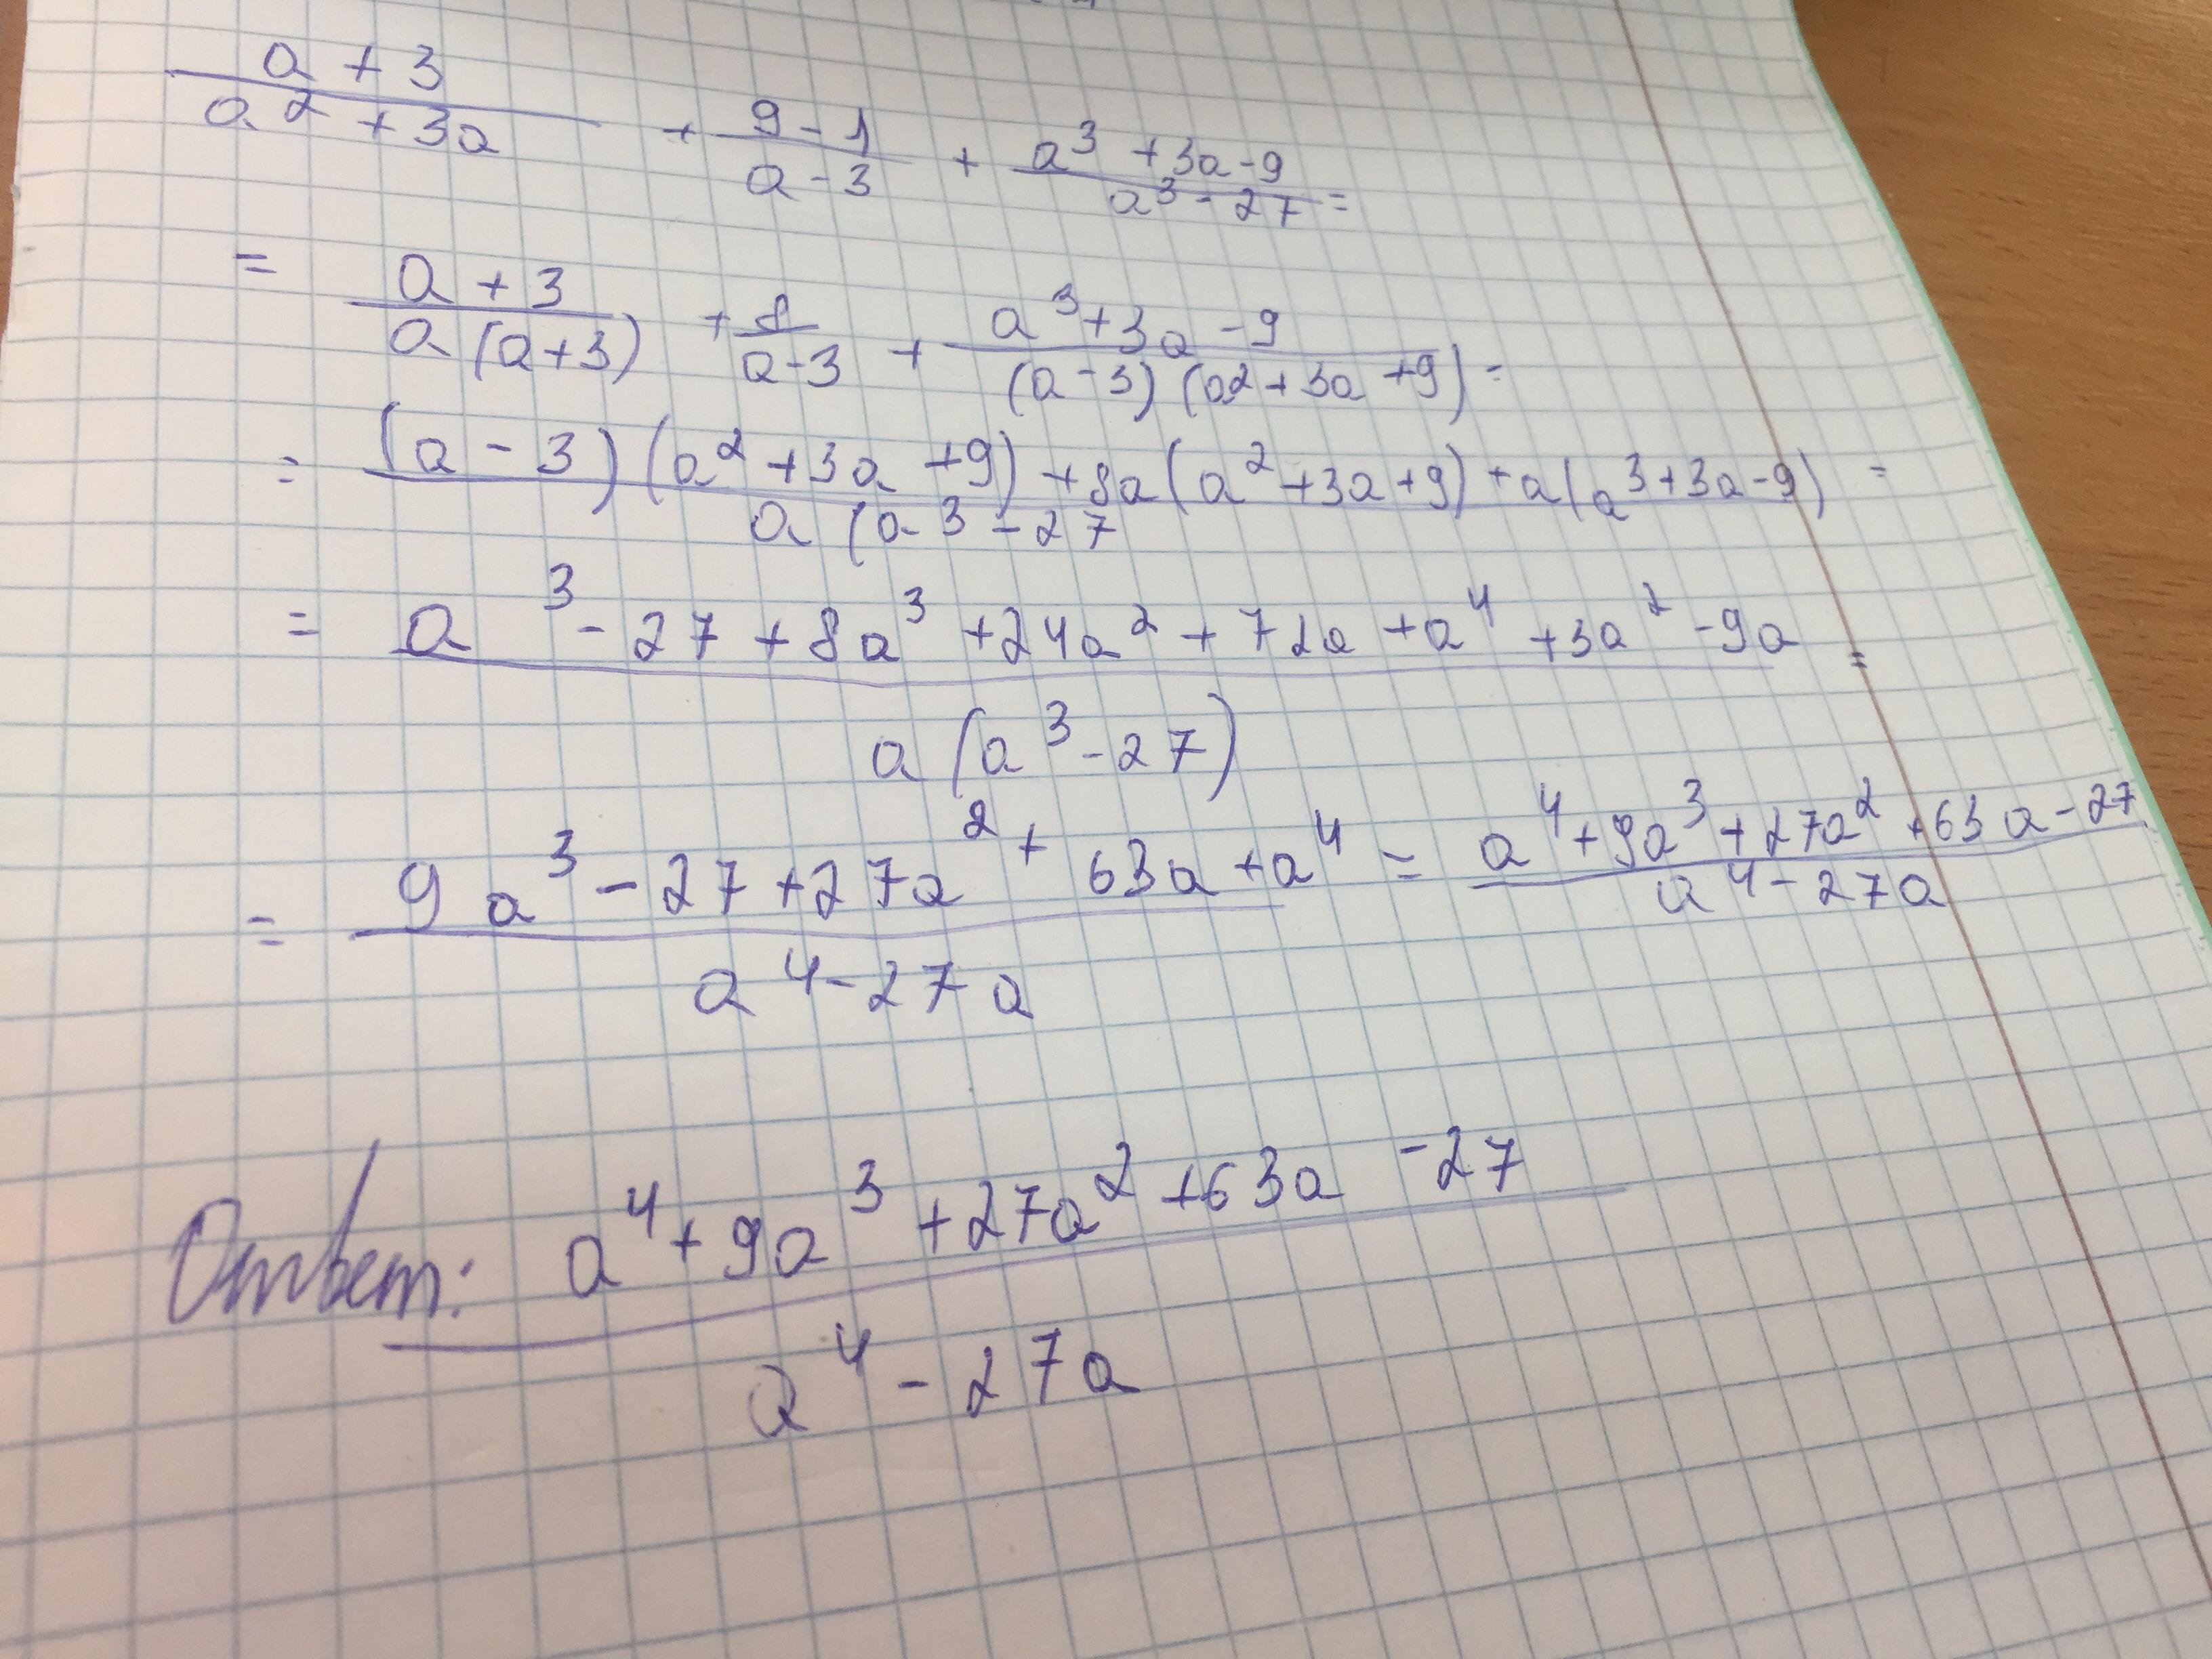 (a + 3)/(a² + 3a) + (9 - 1)/(a - 3) + (a³ + 3a - 9)/(a³ - 27) =
= (a + 3)/(a (a + 3)) + 8/(a - 3) + (a³ + 3a - 9)/((a - 3) (a² + 3a + 9)) =
= ((a - 3) (a² + 3a + 9) + 8a (a² + 3a + 9) + a (a³ + 3a - 9))/(a (a³ - 27) =
= (a³ - 27 + 8a³ + 24a² + 72a + a⁴ + 3a² - 9a)/(a (a³ - 27)) =
= (9a³ - 27 + 27a² + 63a + a⁴)/(a⁴ - 27a) = (a⁴ + 9a³ + 27a² + 63a - 27)/(a⁴ - 27a)
Ответ: (a⁴ + 9a³ + 27a² + 63a - 27)/(a⁴ - 27a)